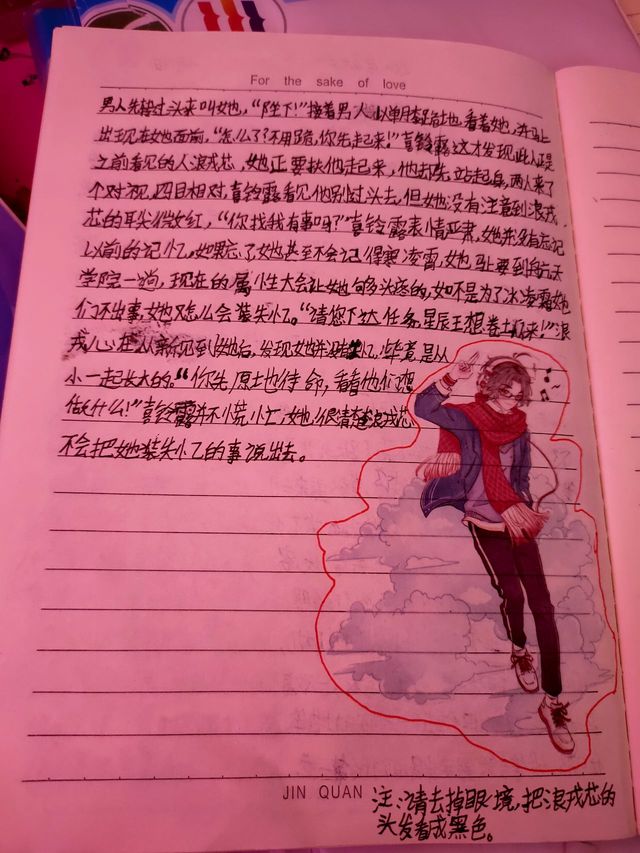 For the sake of love
男人先转过头来叫她，“陛下！”接着男人以单膝跪地，看着她，并马上
出现在她面前，“怎么了？不用跪，你先起来！”喜铃露这才发现此人正是
之前看见的人浪戎芯，她正要扶他起来，他却先站起身，两人来了
个对视，四目相对，喜铃露看见他别过头去，但她没有注意到浪戎
芯的耳尖微红，“你找我有事吗？”喜铃露表情严肃，她并没有忘记
以前的记忆，她果忘了她甚至不会记得寒凌雪，她马上要到
学院一趟，现在的属性大会让她够多头疼的，如不是为了冰凌雪她
们不出事，她又怎么会装失忆。“请您下达任务，星辰王想卷土从来！”浪
戎心在从新见到她后，发现她并没失忆，毕竟是从
小一起长大的。“你先原土也待命，看看他们想
做什么！”喜铃露并不慌忙，她很清楚浪戎芯
不会把她装失忆的事说出去。
JIN QUAN
注：请去掉眼境，把浪戎芯的
头发看成黑色。